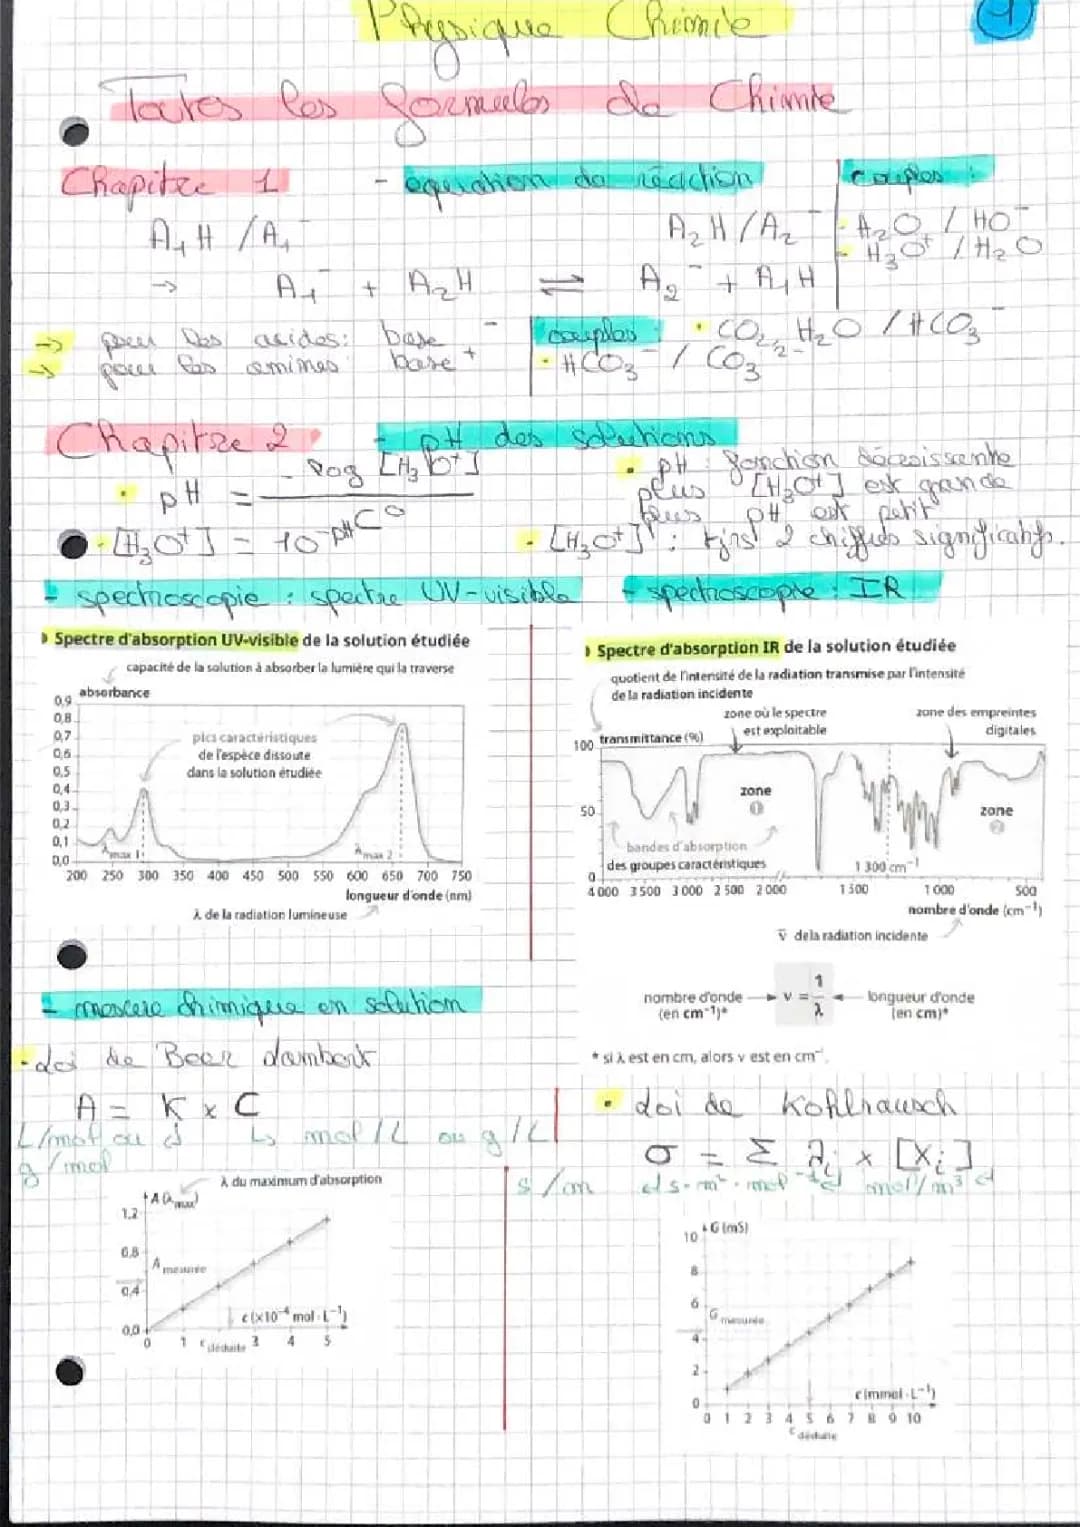 Physique Chimie
1
Toutes les formules de Chimie
Chapitre 1 - équation de réaction
couples :
A₁H / A₁⁻ A₂H / A₂⁻
- H₂O / HO⁻
- H₃O⁺ / H₂O
→ A₁⁻ + A₂H ⇌ A₂⁻ + A₁H
→ pour les acides : base⁻
→ pour les amines base⁺
couples • CO₂, H₂O / HCO₃⁻
• HCO₃⁻ / CO₃²⁻
Chapitre 2 - pH des solutions
• pH = - log [H₃O⁺] / C°
• pH : fonction décroissante
plus [H₃O⁺] est grande
plus pH est petit
• [H₃O⁺] = 10^-pH C°
• [H₃O⁺] : tjrs 2 chiffres significatifs.
- spectroscopie : spectre UV-visible
- spectroscopie : IR
Spectre d'absorption UV-visible de la solution étudiée
capacité de la solution à absorber la lumière qui la traverse
absorbance
0,9
0,8
0,7
0,6
0,5
0,4
0,3
0,2
0,1
0,0
pics caractéristiques
de l'espèce dissoute
dans la solution étudiée
λmax 1
λmax 2
200 250 300 350 400 450 500 550 600 650 700 750
longueur d'onde (nm)
λ de la radiation lumineuse
Spectre d'absorption IR de la solution étudiée
quotient de l'intensité de la radiation transmise par l'intensité
de la radiation incidente
zone où le spectre
est exploitable
zone des empreintes
digitales
transmittance (%)
100
50
0
zone
1
zone
2
bandes d'absorption
des groupes caractéristiques
1 300 cm⁻¹
4 000 3 500 3 000 2 500 2 000 1 500 1 000 500
nombre d'onde (cm⁻¹)
ν̄ de la radiation incidente
nombre d'onde
(en cm⁻¹)*
ν = 1/λ
longueur d'onde
(en cm)*
* si λ est en cm, alors ν est en cm⁻¹.
- mesure chimique en solution
• Loi de Beer Lambert
A = K × C
L/mol ou
g/mol
↳ mol/L ou g/L
λ du maximum d'absorption
A(λmax)
1,2
0,8
0,4
0,0
A mesurée
c (×10⁻⁴ mol·L⁻¹)
0 1 c déduite 3 4 5
• Loi de Kohlrausch
σ = Σ λi × [Xi]
S/m
S·m²·mol⁻¹
mol/m³
G (mS)
10
8
6
4
2
0
G mesurée
c (mmol·L⁻¹)
0 1 2 3 4 5 6 7 8 9 10
c déduite